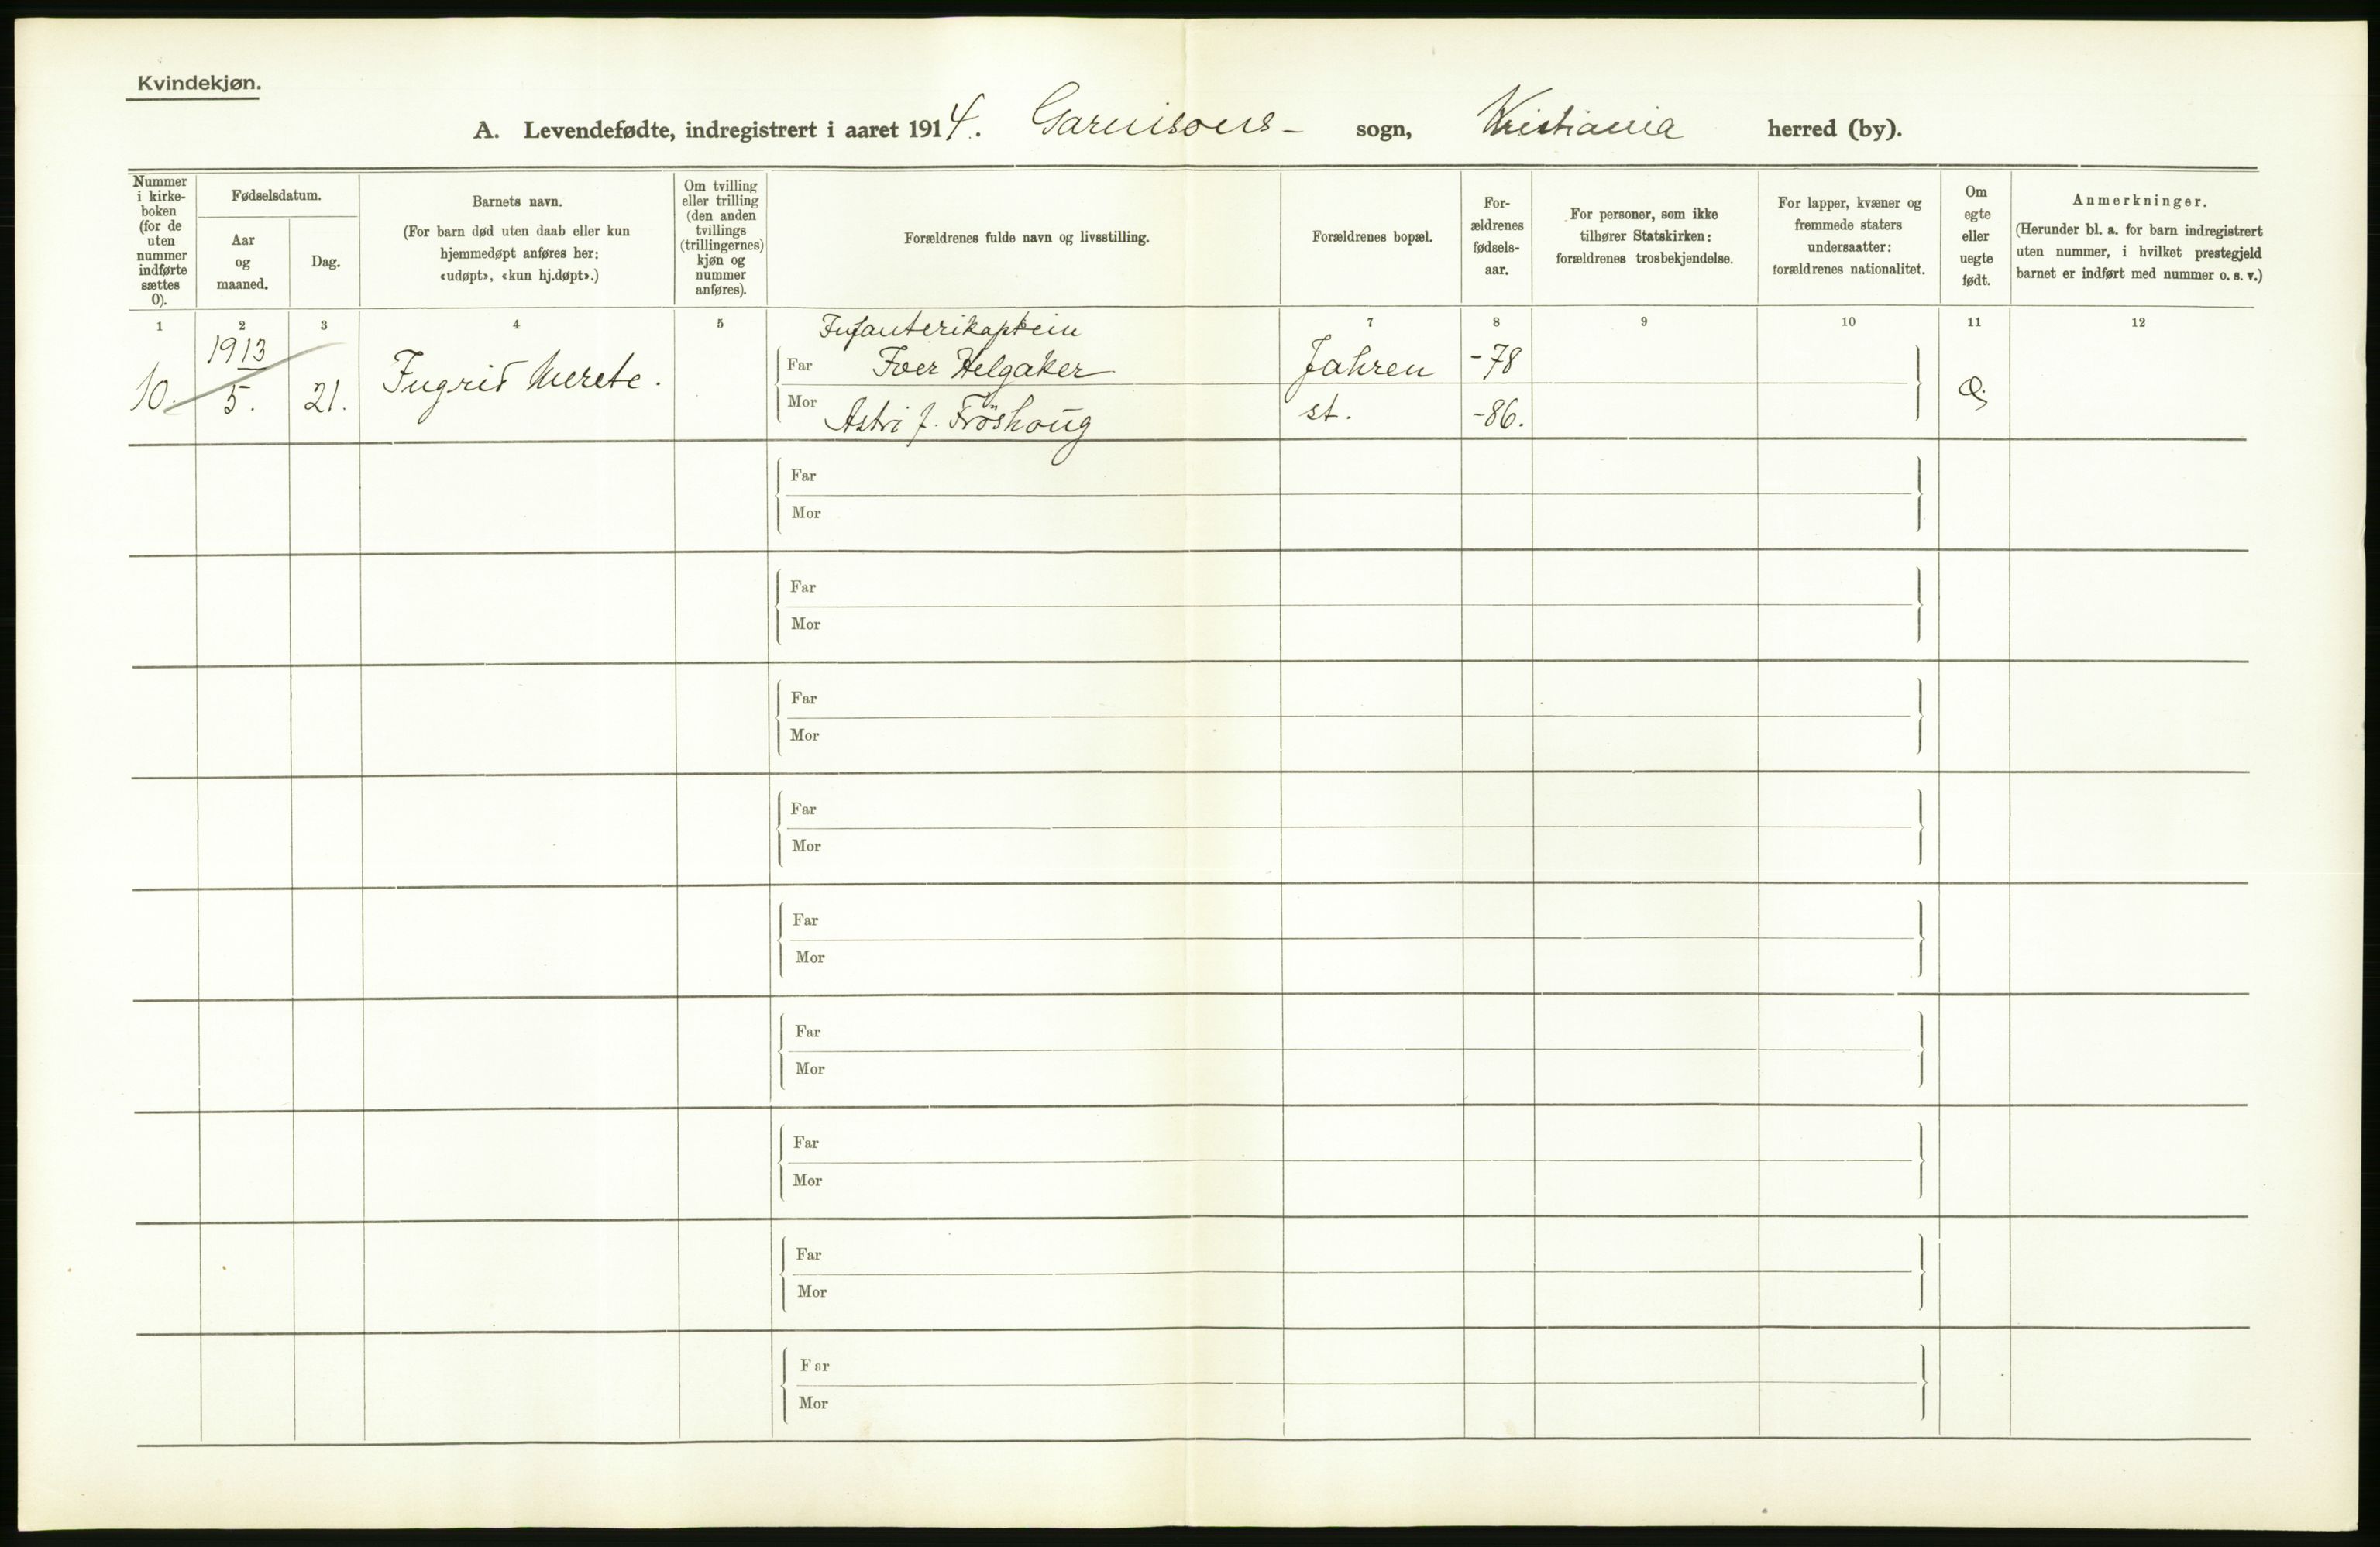 Kvindekjøn.
A. Levendefødte, indregistrert i aaret 1914. Garnisons- sogn, Kristiania herred (by).
Nummer i kirke-boken (for de uten nummer indførte sættes 0).
Fødselsdatum.
Aar og maaned.
Dag.
Barnets navn.
(For barn død uten daab eller kun hjemmedøpt anføres her: «udøpt», «kun hj.døpt».)
Om tvilling eller trilling (den anden tvillings (trillingernes) kjøn og nummer anføres).
Forældrenes fulde navn og livsstilling.
Forældrenes bopæl.
For-ældrenes fødsels-aar.
For personer, som ikke tilhører Statskirken: forældrenes trosbekjendelse.
For lapper, kvæner og fremmede staters undersaatter: forældrenes nationalitet.
Om egte eller uegte født.
Anmerkninger.
(Herunder bl. a. for barn indregistrert uten nummer, i hvilket prestegjeld barnet er indført med nummer o. s. v.)
1 2 3 4 5 7 8 9 10 11 12
1913
10. 5. 21. Ingrid Merete.
Infanterikaptein
Far Iver Helgaker Jahren -78
Mor Astri f. Fröshoug st. -86.
Far
Mor
Far
Mor
Far
Mor
Far
Mor
Far
Mor
Far
Mor
Far
Mor
Far
Mor
Far
Mor